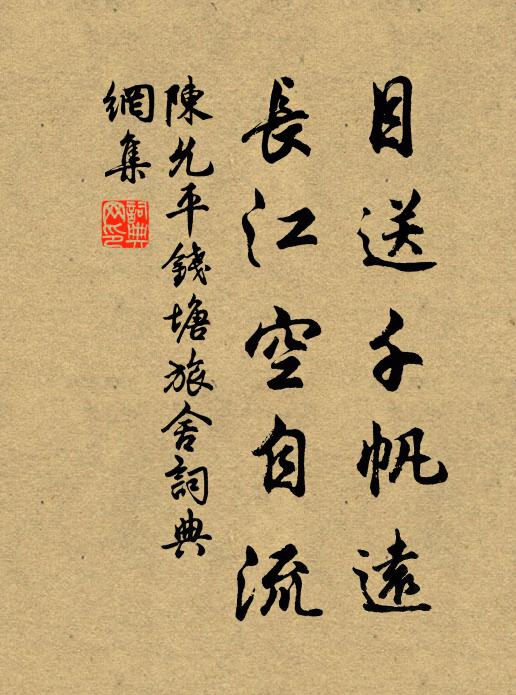 目送千帆遠
長江空自流
陳允平錢塘旅舍詞典
網集
詞典
网印